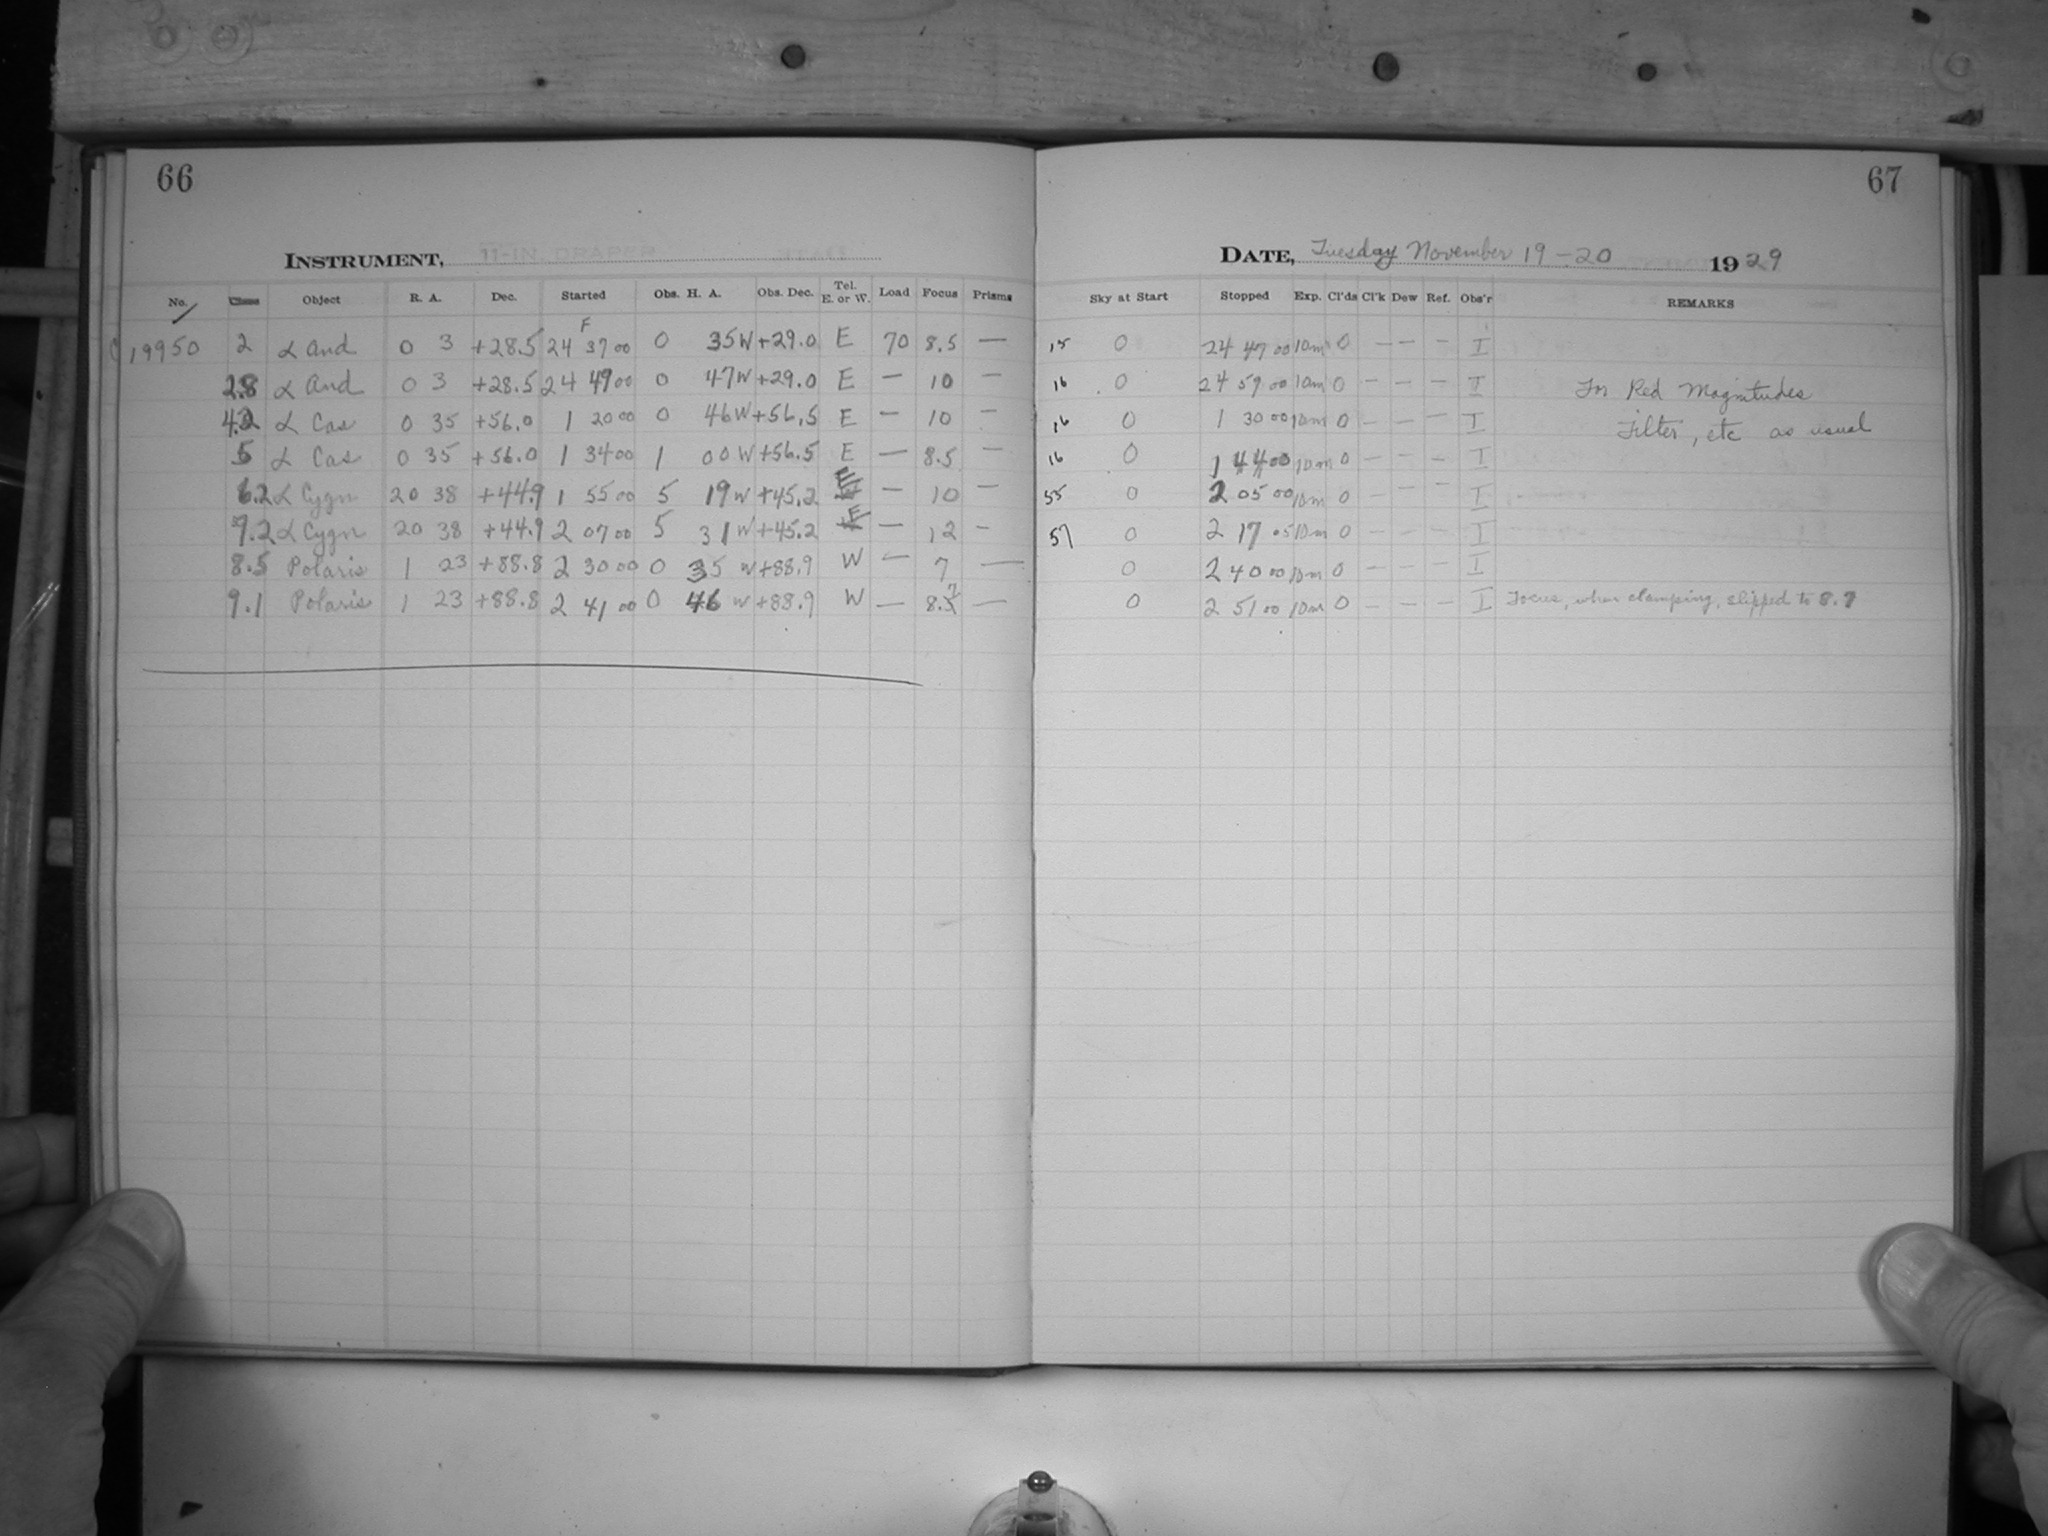 66
INSTRUMENT, 11-IN DRAPER
No. Class Object R. A. Dec. Started Obs. H. A. Obs. Dec. Tel. E. or W. Load Focus Prisms
C 19950 2 α And 0 3 +28.5 24 37 00 F 0 35 W +29.0 E 70 8.5 —
2.8 α And 0 3 +28.5 24 49 00 0 47 W +29.0 E — 10 —
4.2 α Cas 0 35 +56.0 1 20 00 0 46 W +56.5 E — 10 —
5 α Cas 0 35 +56.0 1 34 00 1 00 W +56.5 E — 8.5 —
6.2 α Cygn 20 38 +44.9 1 55 00 5 19 W +45.2 E — 10 —
7.2 α Cygn 20 38 +44.9 2 07 00 5 31 W +45.2 E — 12 —
8.5 Polaris 1 23 +88.8 2 30 00 0 35 W +88.9 W — 7 —
9.1 Polaris 1 23 +88.8 2 41 00 0 46 W +88.9 W — 8.7 —
67
DATE, Tuesday November 19-20 1929
Sky at Start Stopped Exp. Cl'ds Cl'k Dew Ref. Obs'r REMARKS
15 0 24 47 00 10m 0 — — — I
16 0 24 59 00 10m 0 — — — I For Red Magnitudes
16 0 1 30 00 10m 0 — — — I Filter, etc as usual
16 0 1 44 00 10m 0 — — — I
55 0 2 05 00 10m 0 — — — I
57 0 2 17 05 10m 0 — — — I
0 2 40 00 10m 0 — — — I
0 2 51 00 10m 0 — — — I Focus, when clamping, slipped to 8.7